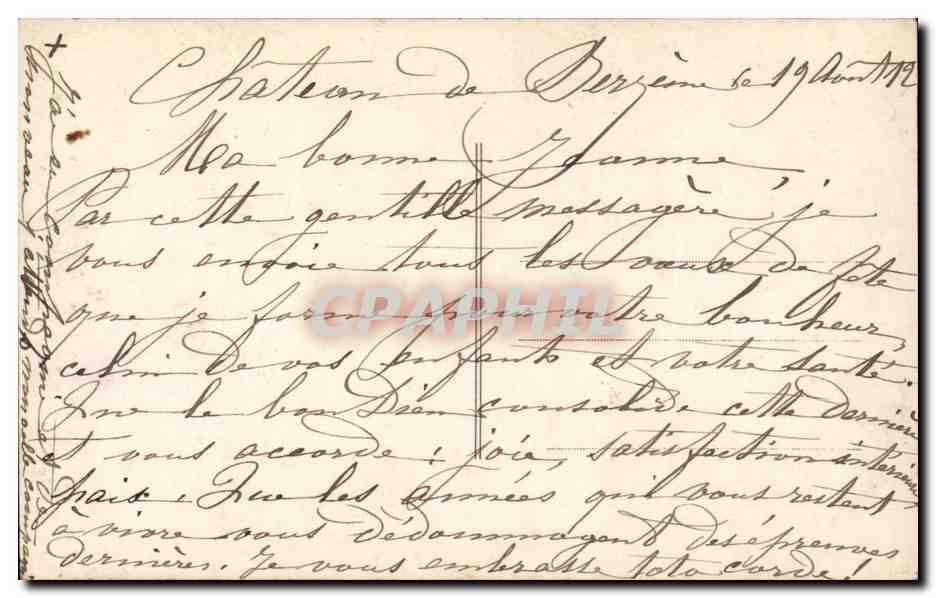 Château de Berzème le 19 Août 12
Ma bonne Jeanne
Par cette gentille messagère je
vous envoie tous les vœux de fête
que je forme pour votre bonheur,
celui de vos enfants et votre santé.
Que le bon Dieu consolide cette dernière
et vous accorde : joie, satisfaction intérieure,
paix. Que les années qui vous restent
à vivre vous dédommagent des épreuves
dernières. Je vous embrasse toto corde!
+ J'ai eu
CPAPHIL